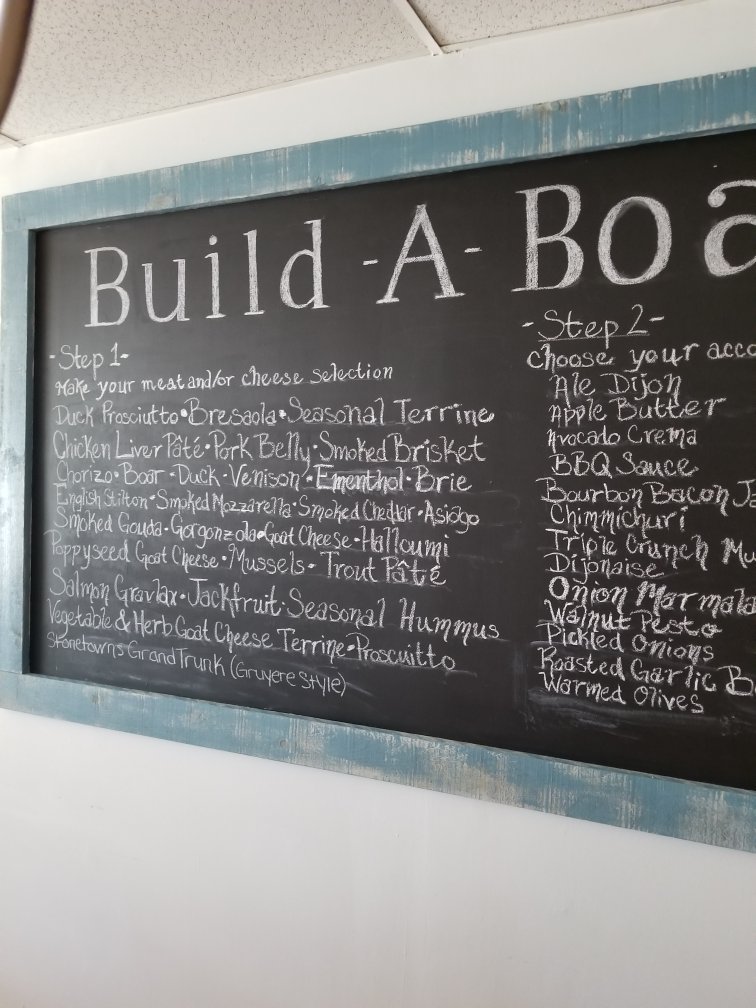 Build -A- Boa
-Step 1-
Make your meat and/or cheese selection
Duck Prosciutto•Bresaola•Seasonal Terrine
Chicken Liver Pâté•Pork Belly•Smoked Brisket
Chorizo•Boar•Duck•Venison•Ementhol•Brie
English Stilton•Smoked Mozzarella•Smoked Cheddar•Asiago
Smoked Gouda•Gorgonzola•Goat Cheese•Halloumi
Poppyseed Goat Cheese•Mussels•Trout Pâté
Salmon Gravlax•Jackfruit•Seasonal Hummus
Vegetable & Herb Goat Cheese Terrine•Proscuitto
Stonetowns Grand Trunk (Gruyere Style)
-Step 2-
Choose your acco
Ale Dijon
Apple Butter
Avocado Crema
BBQ Sauce
Bourbon Bacon Ja
Chimmichuri
Triple Crunch Mu
Dijonaise
Onion Marmala
Walnut Pesto
Pickled Onions
Roasted Garlic B
Warmed Olives